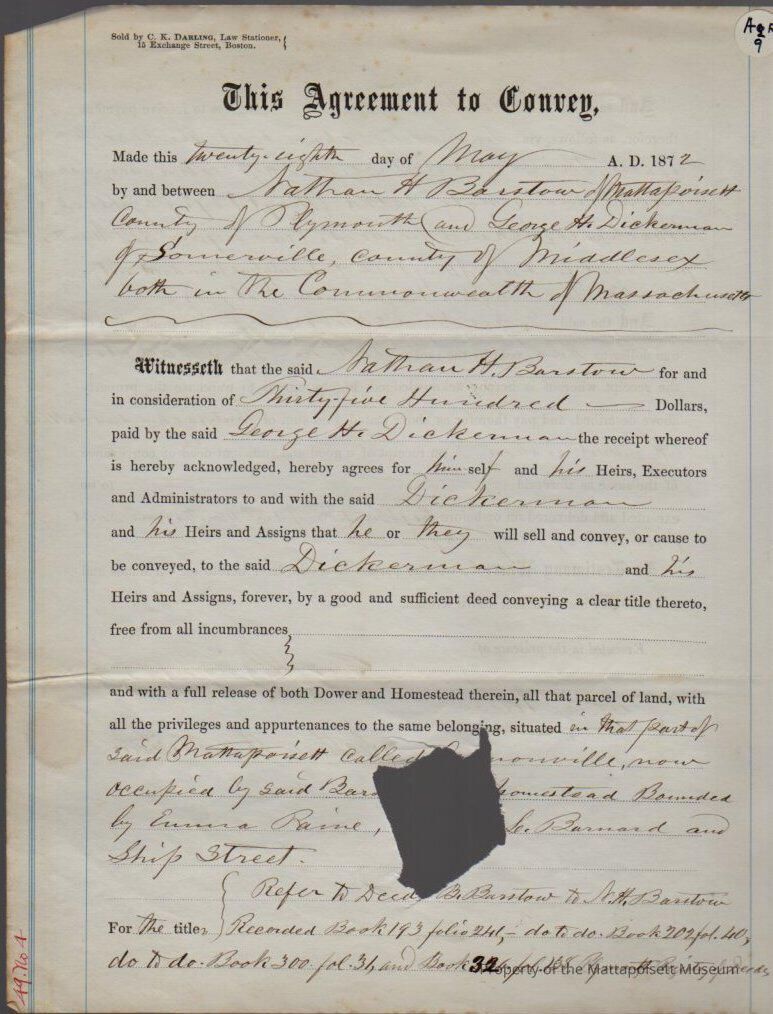 Sold by C. K. DARLING, Law Stationer,
15 Exchange Street, Boston.
AgR
9
This Agreement to Convey,
Made this twenty-eighth day of May A. D. 1872
by and between Nathan H Barstow of Mattapoisett
County of Plymouth and George H. Dickerman
of Somerville, County of Middlesex
both in the Commonwealth of Massachusetts
Witnesseth that the said Nathan H. Barstow for and
in consideration of Thirtyfive Hundred — Dollars,
paid by the said George H. Dickerman the receipt whereof
is hereby acknowledged, hereby agrees for himself and his Heirs, Executors
and Administrators to and with the said Dickerman
and his Heirs and Assigns that he or they will sell and convey, or cause to
be conveyed, to the said Dickerman and his
Heirs and Assigns, forever, by a good and sufficient deed conveying a clear title thereto,
free from all incumbrances,
and with a full release of both Dower and Homestead therein, all that parcel of land, with
all the privileges and appurtenances to the same belonging, situated in that part of
said Mattapoisett called nonville, now
occupied by said Bars omestead Bounded
by Emma Paine, L. Barnard and
Ship Street.
Refer to Deed B. Barstow to N. H. Barstow
For the title, Recorded Book 193 folio 241, – do to do. Book 202 fol. 40,
do to do. Book 300 fol. 31, and Book 32 fol. 138 Plymouth Registry of Deeds
Property of the Mattapoisett Museum
49. No 4